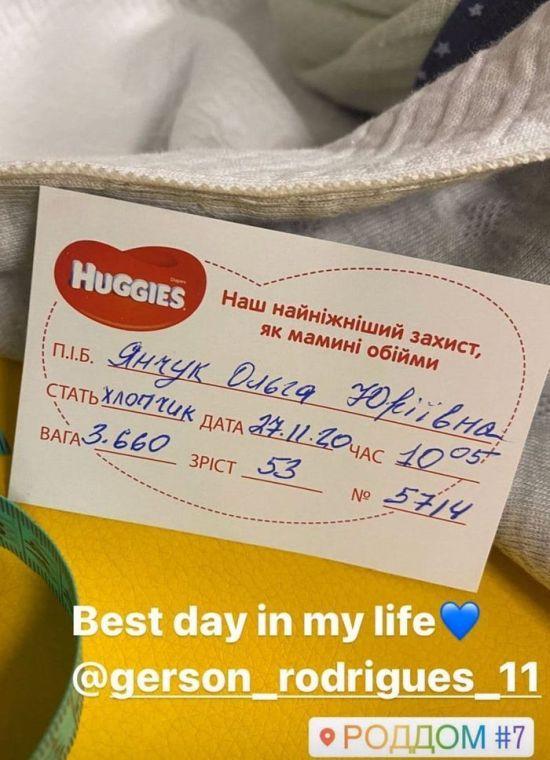 HUGGIES
Наш найніжніший захист,
як мамині обійми
П.І.Б. Янчук Ольга Юріївна
СТАТЬ хлопчик ДАТА 27.11.20 ЧАС 10 05
ВАГА 3.660 ЗРІСТ 53
№ 5714
Best day in my life💙
@gerson_rodrigues_11
РОДДОМ #7